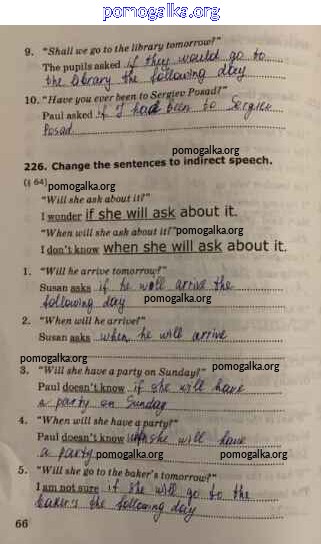 pomogalka.org
9. "Shall we go to the library tomorrow?"
The pupils asked if they would go to
the library the following day
10. "Have you ever been to Sergiev Posad?"
Paul asked if I had been to Sergiev
Posad
pomogalka.org
226. Change the sentences to indirect speech.
(§ 64) pomogalka.org pomogalka.org
"Will she ask about it?"
I wonder if she will ask about it.
"When will she ask about it?" pomogalka.org
I don't know when she will ask about it.
1. "Will he arrive tomorrow?" pomogalka.org
Susan asks if he will arrive the
following day pomogalka.org
2. "When will he arrive?"
Susan asks when he will arrive
pomogalka.org pomogalka.org
3. "Will she have a party on Sunday?"
Paul doesn't know if she will have
a party on Sunday
4. "When will she have a party?"
Paul doesn't know when she will have
a party pomogalka.org pomogalka.org
5. "Will she go to the baker's tomorrow?"
I am not sure if she will go to the
baker's the following day
66